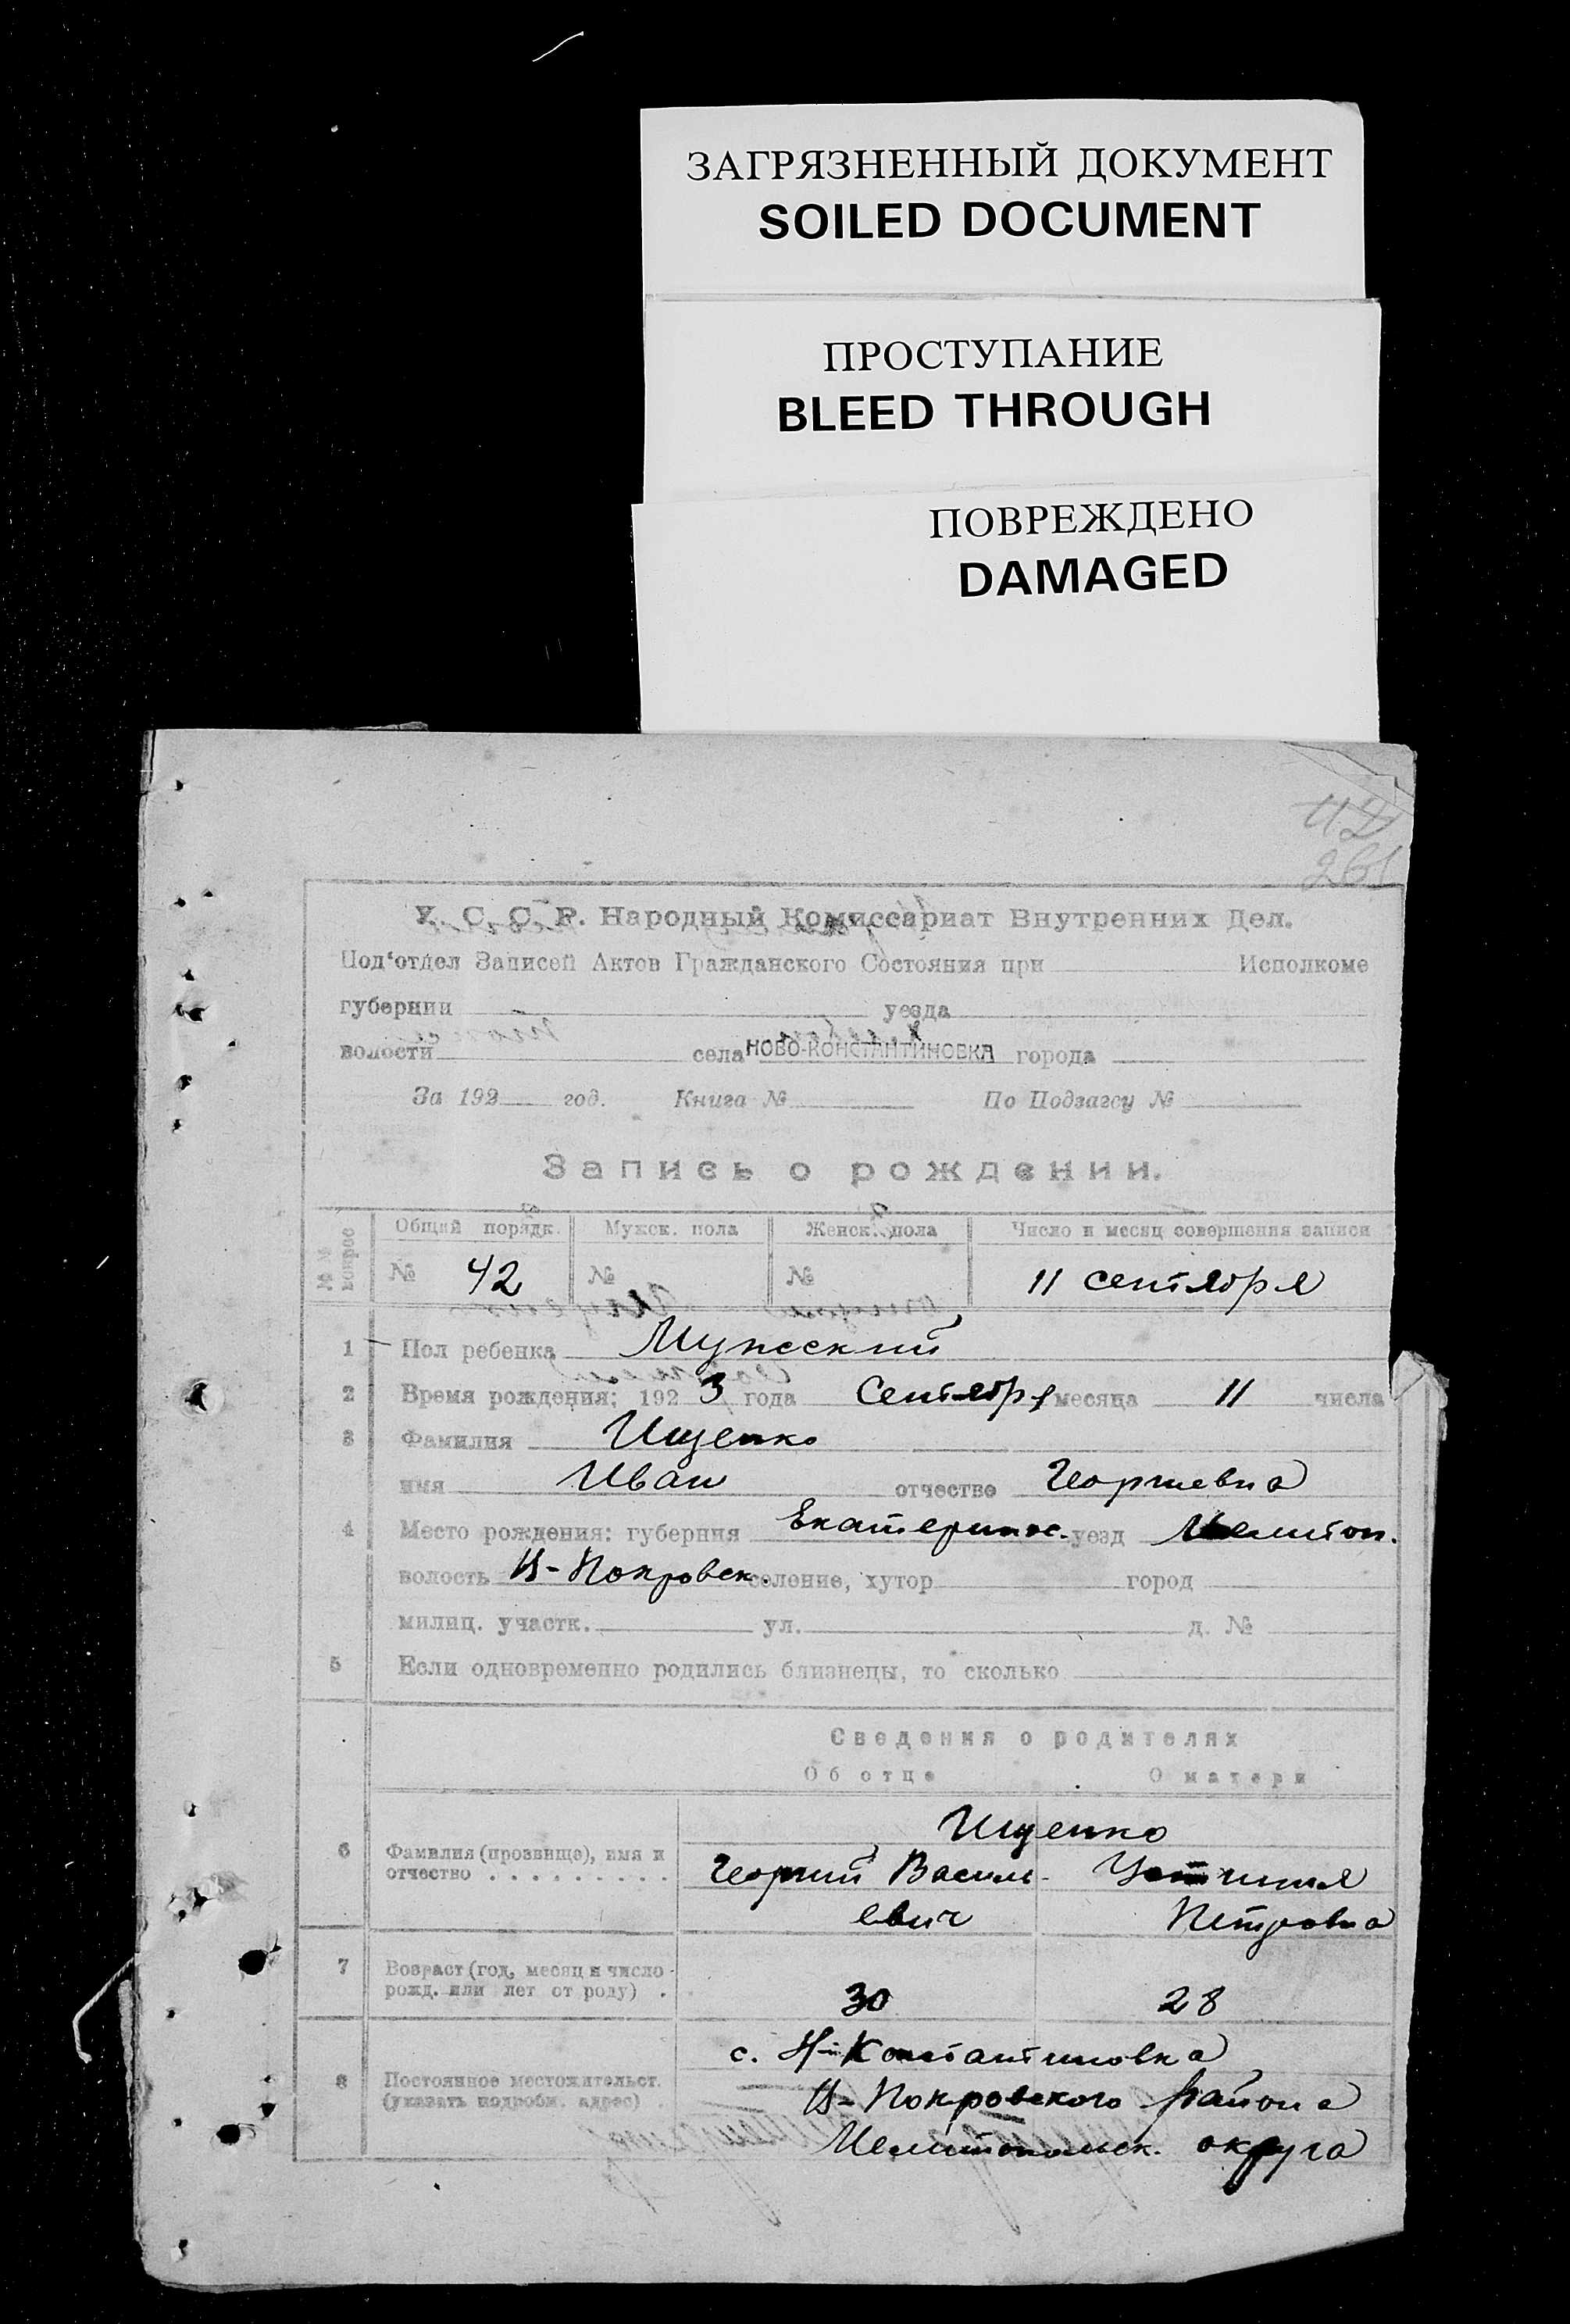 ЗАГРЯЗНЕННЫЙ ДОКУМЕНТ
SOILED DOCUMENT
ПРОСТУПАНИЕ
BLEED THROUGH
ПОВРЕЖДЕНО
DAMAGED
42
У. С. С. Р. Народный Комиссариат Внутренних Дел.
Под'отдел Записей Актов Гражданского Состояния при Исполкоме
губернии уезда
волости села НОВО-КОНСТАНТИНОВКА города
За 192 год. Книга № По Подзагсу №
Запись о рождении.
№№ вопрос Общий порядк. Мужск. пола Женск. пола Число и месяц совершения записи
№ 42 № № 11 сентября
1 Пол ребенка Мужеский
2 Время рождения: 1923 года Сентября месяца 11 числа
3 Фамилия Ищенко
имя Иван отчество Георгиевна
4 Место рождения: губерния Екатеринос. уезд Мелитоп.
волость Ц-Покровск. селение, хутор город
милиц. участк. ул. д. №
5 Если одновременно родились близнецы, то сколько
Сведения о родителях
Об отце О матери
Ищенко
6 Фамилия (прозвище), имя и отчество Георгий Василь- Устиния
евич Петровна
7 Возраст (год, месяц и число рожд. или лет от роду) 30 28
с. Н-Константиновка
8 Постоянное местожительст. (указать подробн. адрес) Ц-Покровского района
Мелитопольск. округа